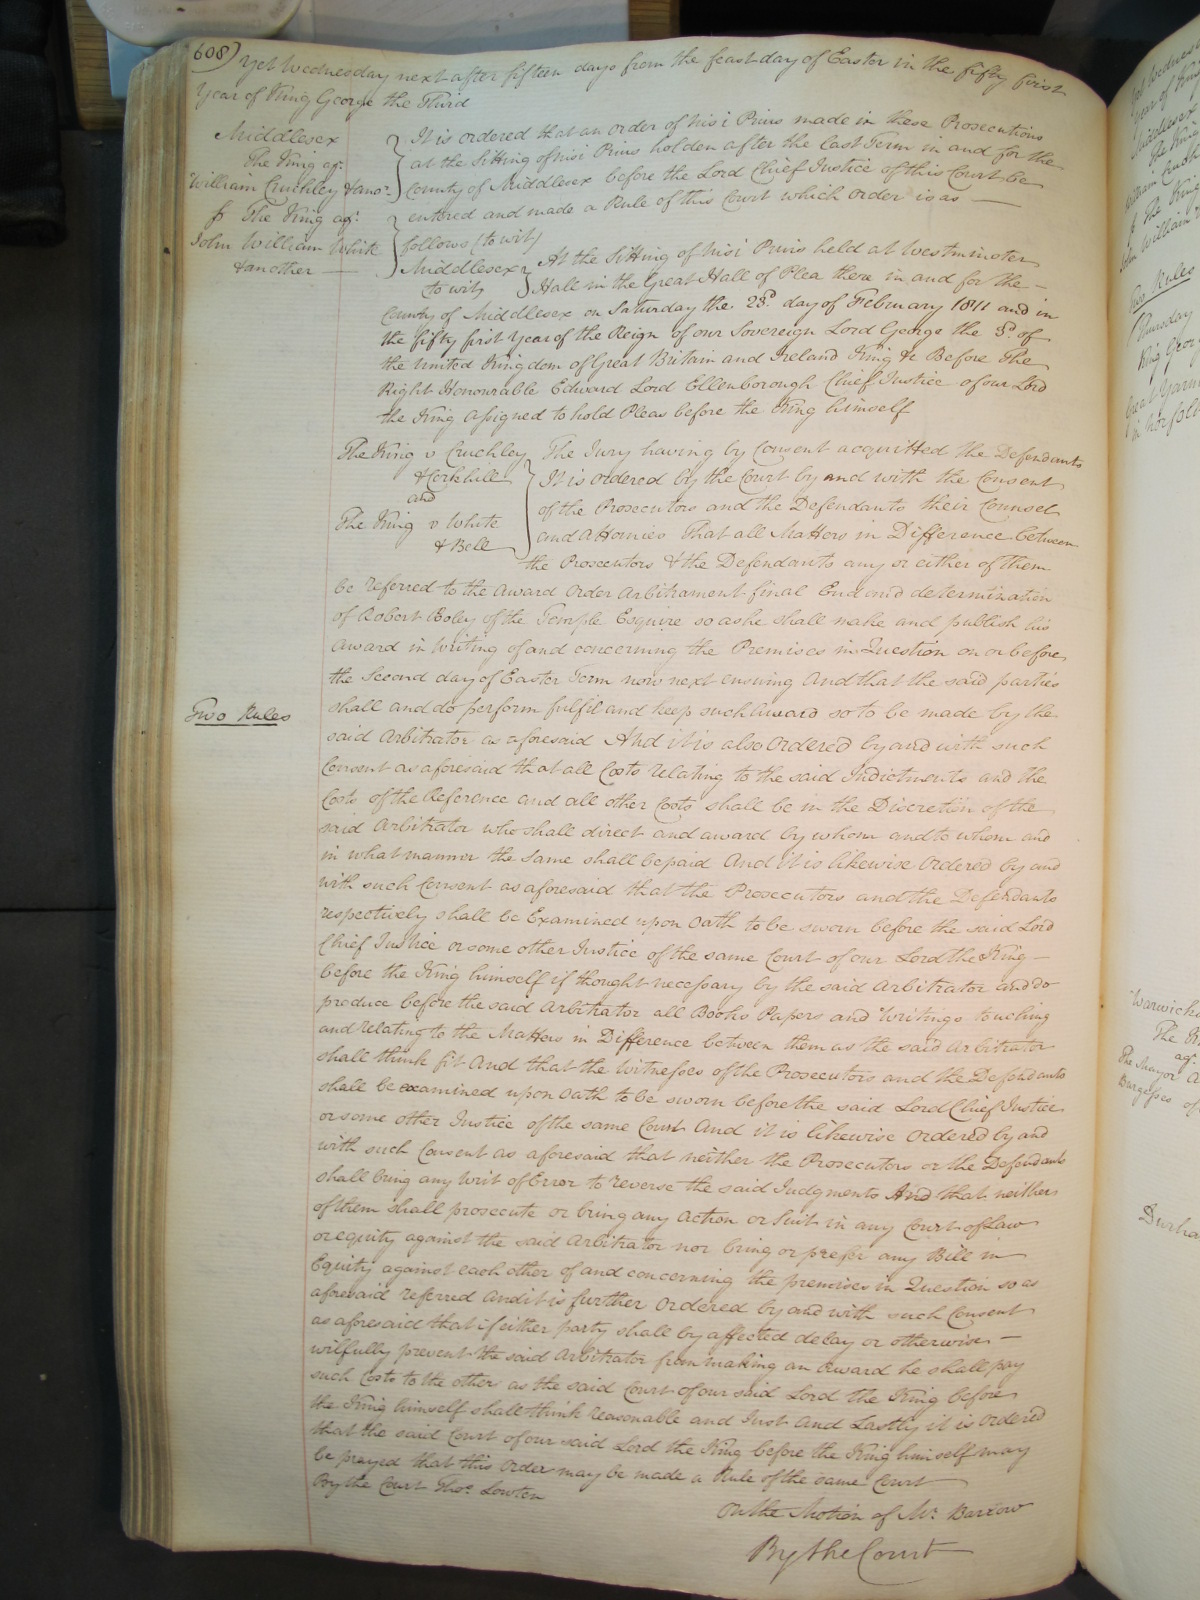 608)
Yet Wednesday next after fifteen days from the feast day of Easter in the fifty first
Year of King George the Third
Middlesex
The King agt.
William Cruchley & anor.
The King agt.
John William White
& another
It is ordered that an order of Nisi Prius made in these Prosecutions
at the Sitting of Nisi Prius holden after the last Term in and for the
County of Middlesex before the Lord Chief Justice of this Court be
entered and made a Rule of this Court which Order is as —
follows (to wit)
Middlesex
to wit
At the Sitting of Nisi Prius held at Westminster
Hall in the Great Hall of Plea there in and for the —
County of Middlesex on Saturday the 23d. day of February 1811 and in
the fifty first Year of the Reign of our Sovereign Lord George the 3d. of
the United Kingdom of Great Britain and Ireland King &c Before The
Right Honourable Edward Lord Ellenborough Chief Justice of our Lord
the King assigned to hold Pleas before the King himself
The King v Cruchley
& Corkhill
and
The King v White
& Bell
The Jury having by Consent acquitted the Defendants
It is ordered by the Court by and with the Consent
of the Prosecutors and the Defendants their Counsel
and Attornies That all Matters in Difference between
the Prosecutors & the Defendants any or either of them
be referred to the Award Order Arbitrament final End and determination
of Robert of the Temple Esquire so as he shall make and publish his
Award in Writing of and concerning the Premises in Question on or before
the Second day of Easter Term now next ensuing And that the said parties
shall and do perform fulfil and keep such Award so to be made by the
Two Rules
said Arbitrator as aforesaid And it is also Ordered by and with such
Consent as aforesaid that all Costs relating to the said Indictments and the
Costs of the Reference and all other Costs shall be in the Discretion of the
said Arbitrator who shall direct and award by whom and to whom and
in what manner the same shall be paid And it is likewise Ordered by and
with such Consent as aforesaid that the Prosecutors and the Defendants
respectively shall be Examined upon Oath to be sworn before the said Lord
Chief Justice or some other Justice of the same Court of our Lord the King —
before the King himself if thought necessary by the said Arbitrator and do
produce before the said Arbitrator all Books Papers and Writings touching
and relating to the Matters in Difference between them as the said Arbitrator
shall think fit And that the Witnesses of the Prosecutors and the Defendants
shall be examined upon Oath to be sworn before the said Lord Chief Justice
or some other Justice of the same Court And it is likewise Ordered by and
with such Consent as aforesaid that neither the Prosecutors or the Defendants
shall bring any Writ of Error to reverse the said Judgments And that neither
of them shall prosecute or bring any Action or Suit in any Court of Law
or equity against the said Arbitrator nor bring or prefer any Bill in
Equity against each other of and concerning the premises in Question so as
aforesaid referred And it is further Ordered by and with such Consent
as aforesaid that if either party shall by affected delay or otherwise —
wilfully prevent the said Arbitrator from making an Award he shall pay
such Costs to the other as the said Court of our said Lord the King before
the King himself shall think reasonable and Just And Lastly it is Ordered
that the said Court of our said Lord the King before the King himself may
be prayed that this Order may be made a Rule of the same Court
By the Court Thos. Lowten
On the Motion of Mr. Barrow
By the Court
The King
Two Rules
Thursday
in Norfolk
The
agt.